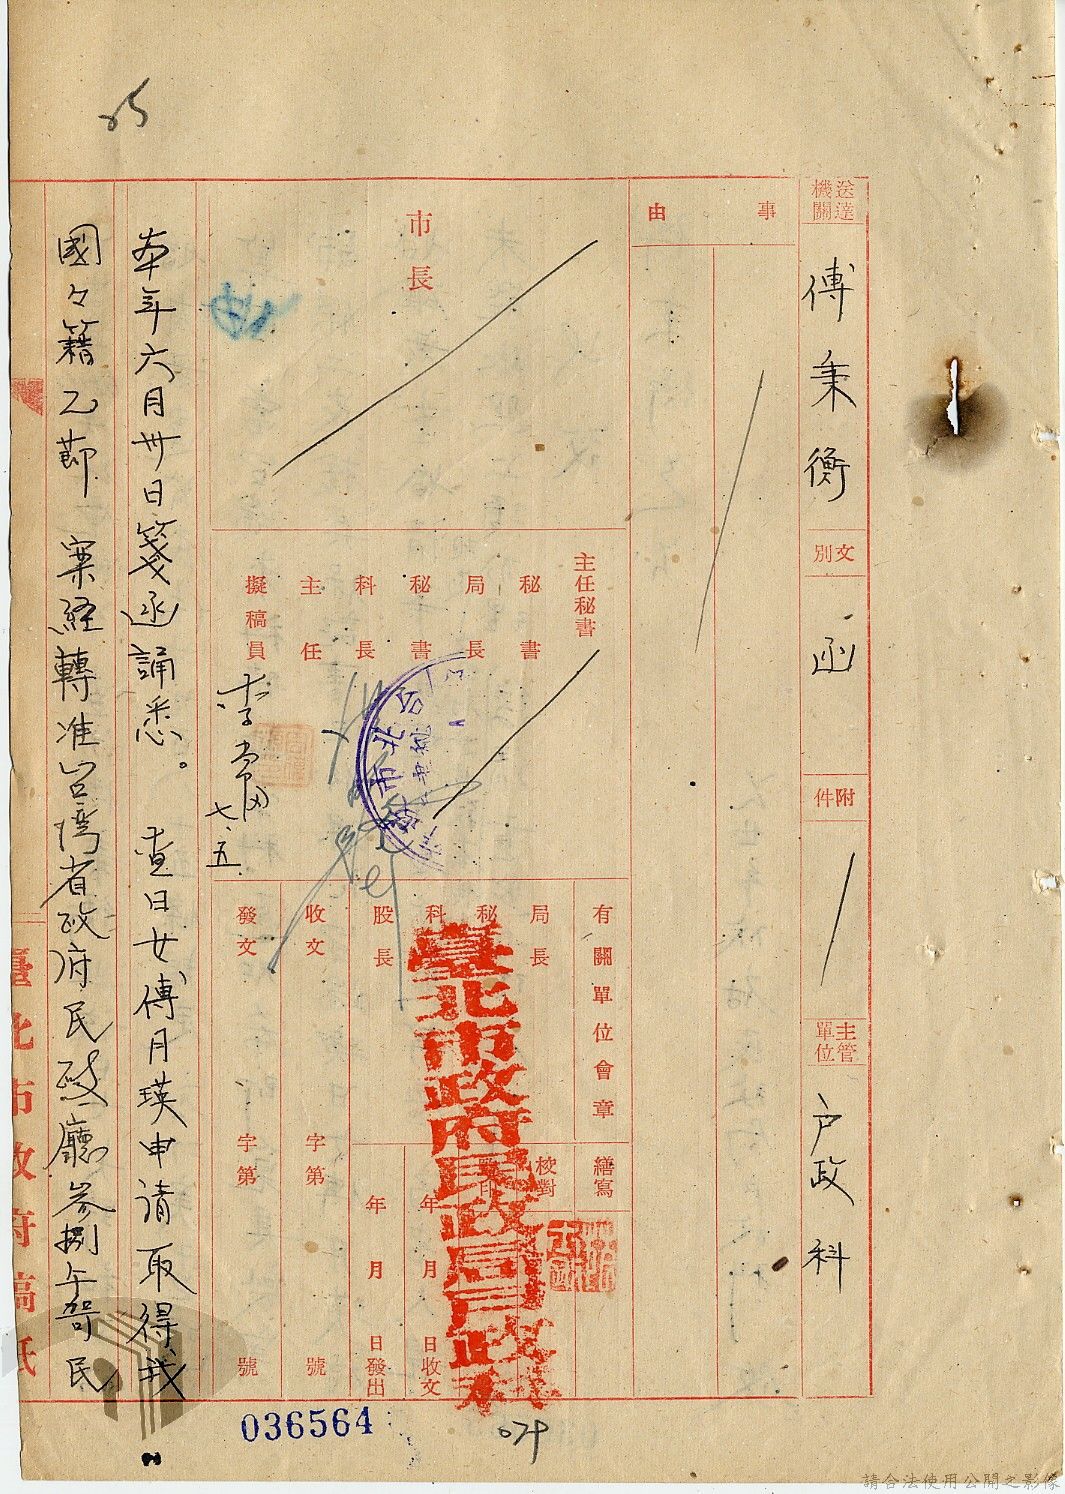 送達機關
傅秉衡
文別
函
附件
主管單位
户政科
事由
市長
主任秘書
秘書
局長
秘書
科長
主任
擬稿員
七.五
有關單位會章
局長
秘
科
股長
收文 字第 號
發文 字第 號
繕寫
校對
年 月 日收文
年 月 日發出
臺北市政府民政局戶政科
本年六月卅日箋函誦悉。查日女傅月瑛申請取得我
國々籍乙節 案経轉准台湾省政府民政廳叁捌午哿民
臺北市政府稿紙
036564
請合法使用公開之影像